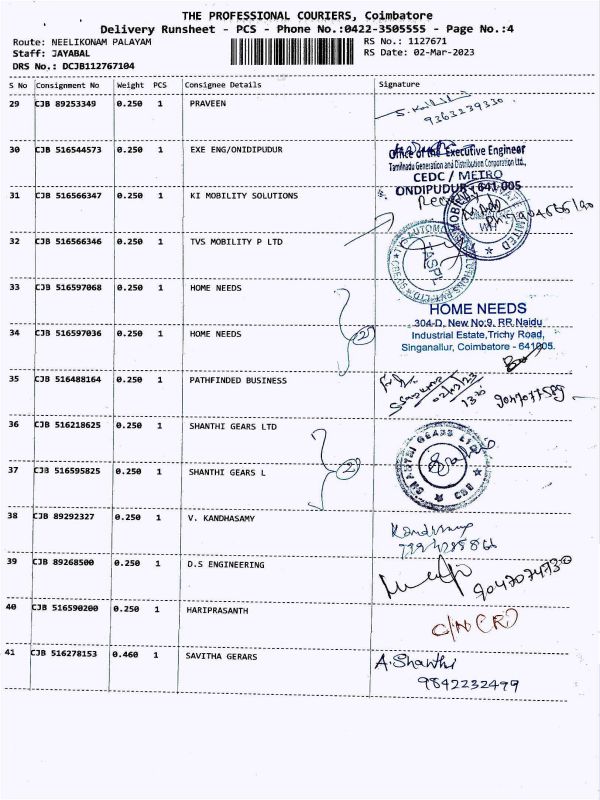 THE PROFESSIONAL COURIERS, Coimbatore
Delivery Runsheet - PCS - Phone No.:0422-3505555 - Page No.:4
Route: NEELIKONAM PALAYAM RS No.: 1127671
Staff: JAYABAL RS Date: 02-Mar-2023
DRS No.: DCJB112767104
S No Consignment No Weight PCS Consignee Details Signature
29 CJB 89253349 0.250 1 PRAVEEN
9363239330
30 CJB 516544573 0.250 1 EXE ENG/ONIDIPUDUR
Office of the Executive Engineer
Tamilnadu Generation and Distribution Corporation Ltd.,
CEDC / METRO
ONDIPUDUR - 641 005
31 CJB 516566347 0.250 1 KI MOBILITY SOLUTIONS
32 CJB 516566346 0.250 1 TVS MOBILITY P LTD
TASPL
33 CJB 516597068 0.250 1 HOME NEEDS
HOME NEEDS
304-D, New No:9, RR.Naidu
Industrial Estate,Trichy Road,
Singanallur, Coimbatore - 641005.
34 CJB 516597036 0.250 1 HOME NEEDS
2
35 CJB 516488164 0.250 1 PATHFINDED BUSINESS
02/03/23
36 CJB 516218625 0.250 1 SHANTHI GEARS LTD
SHANTHI GEARS LTD
CBE
37 CJB 516595825 0.250 1 SHANTHI GEARS L
2
38 CJB 89292327 0.250 1 V. KANDHASAMY
39 CJB 89268500 0.250 1 D.S ENGINEERING
9047074730
40 CJB 516590200 0.250 1 HARIPRASANTH
C/N(R)
41 CJB 516278153 0.460 1 SAVITHA GERARS
A. Shanthi
9842232499